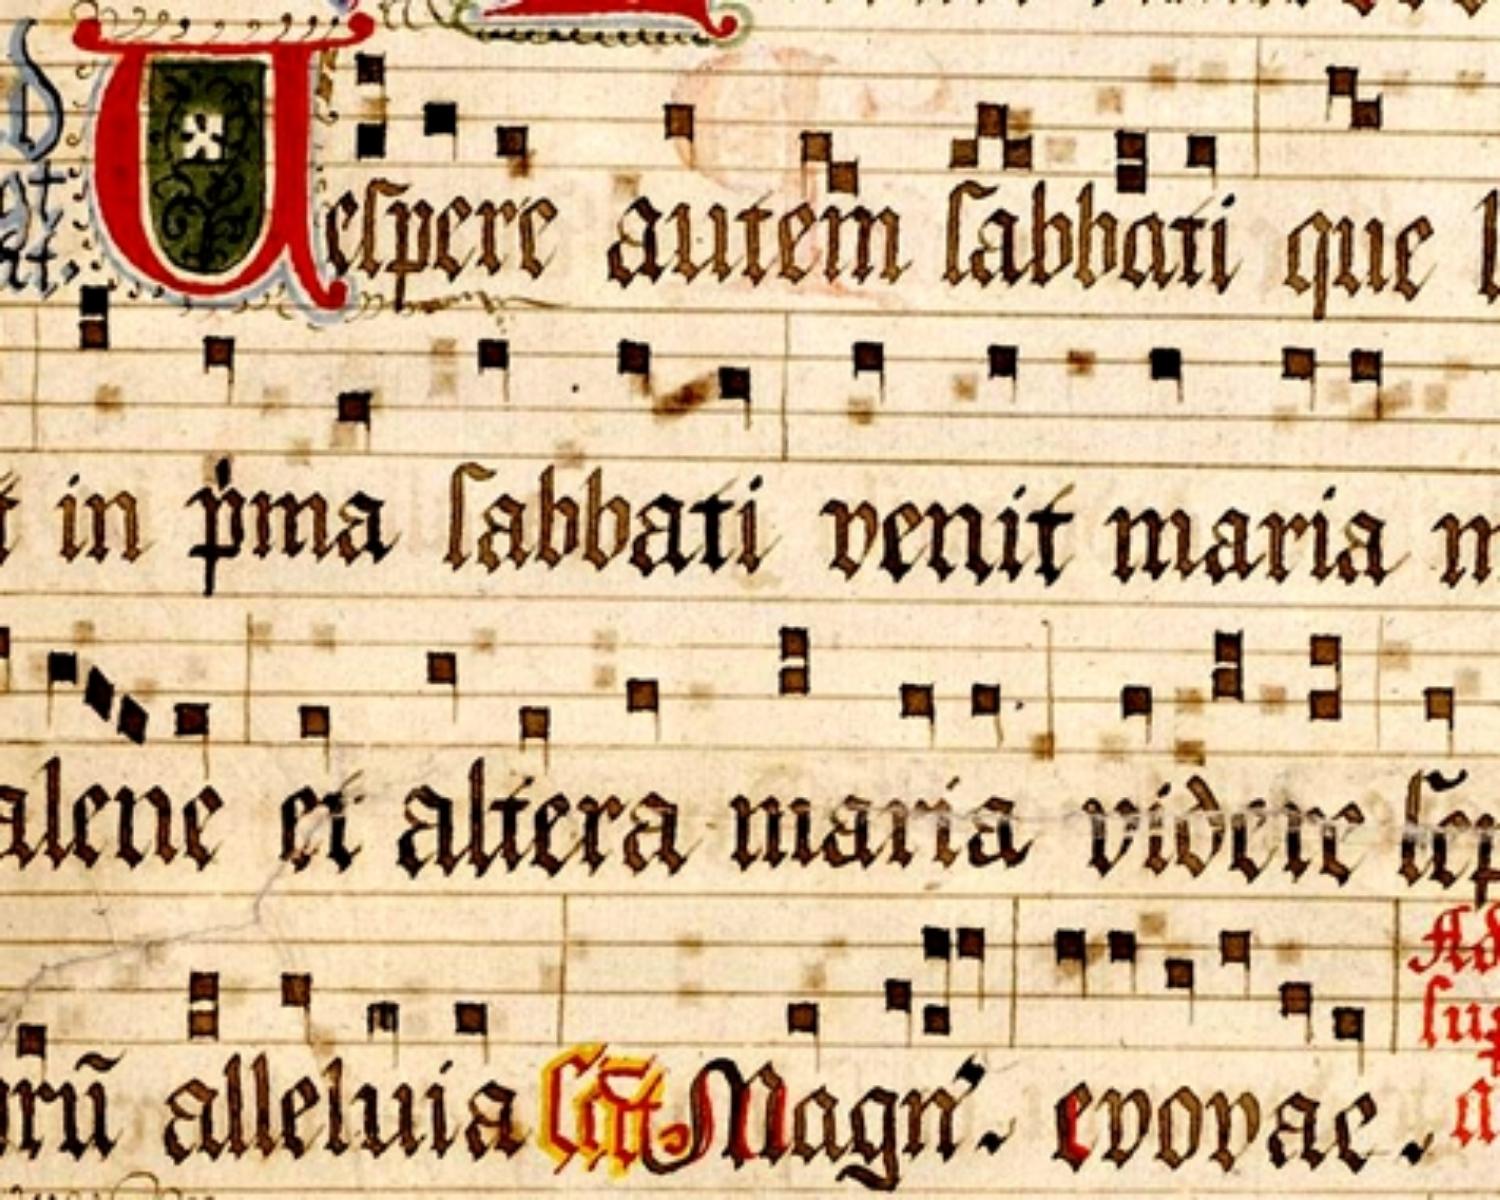 Uespere autem sabbati que l
t in p̍ma sabbati venit maria m
alene et altera maria videre sep
rū alleluia Magn̄. evovae.
Ad
sup
a